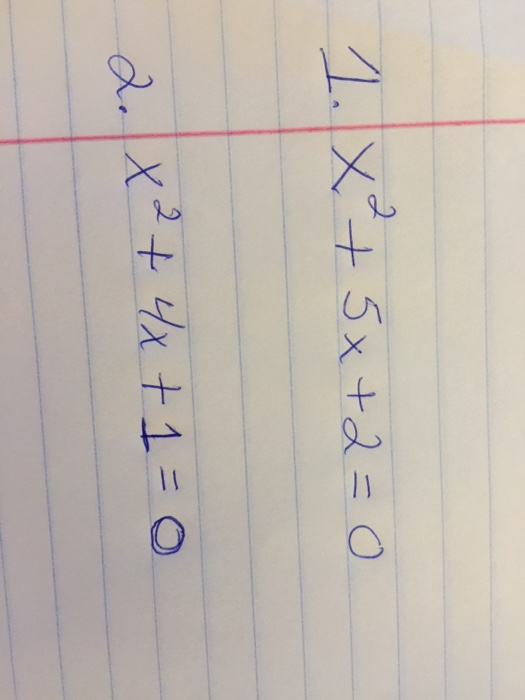 1. x² + 5x + 2 = 0
2. x² + 4x + 1 = 0